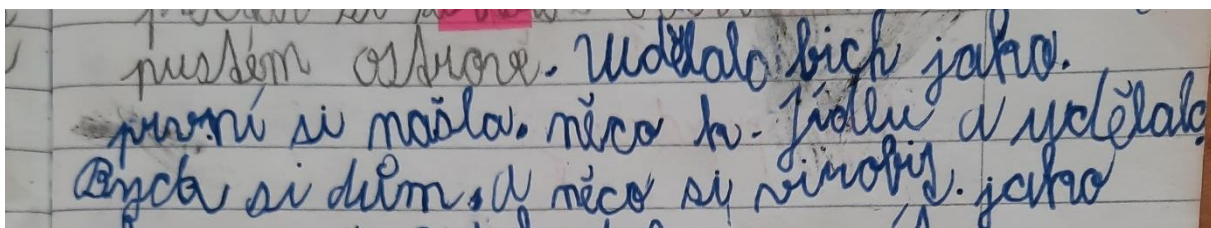 pustém ostrově. Udělala bich jako.
první si našla. něco k. Jídlu a udělala
Bych si dům. a něco si virobyj. jako